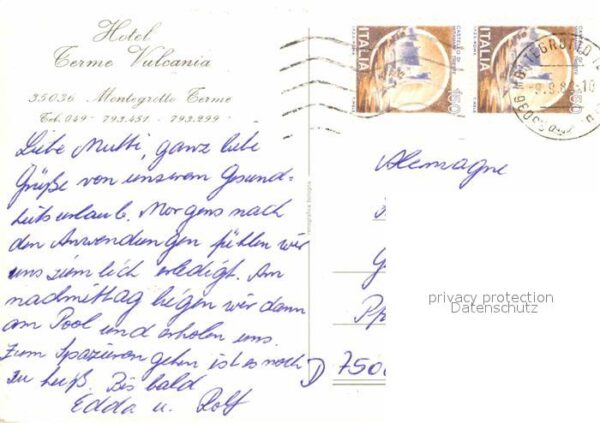 Hotel
Terme Vulcania
35036 - Montegrotto Terme
Tel. 049 - 793.451 - 793.299
Liebe Mutti, ganz liebe
Grüße von unserem Gesund-
heitsurlaub. Morgens nach
den Anwendungen fühlen wir
uns ziemlich erledigt. Am
nachmittag liegen wir dann
am Pool und erholen uns.
Zum Spazieren gehen ist es noch
zu heiß. Bis bald
Edda u. Rolf
ITALIA
150
CASTELLO DI
ITALIA
150
35036 MONTEGROTTO
Alemagne
G
Pp
D 750
privacy protection
Datenschutz